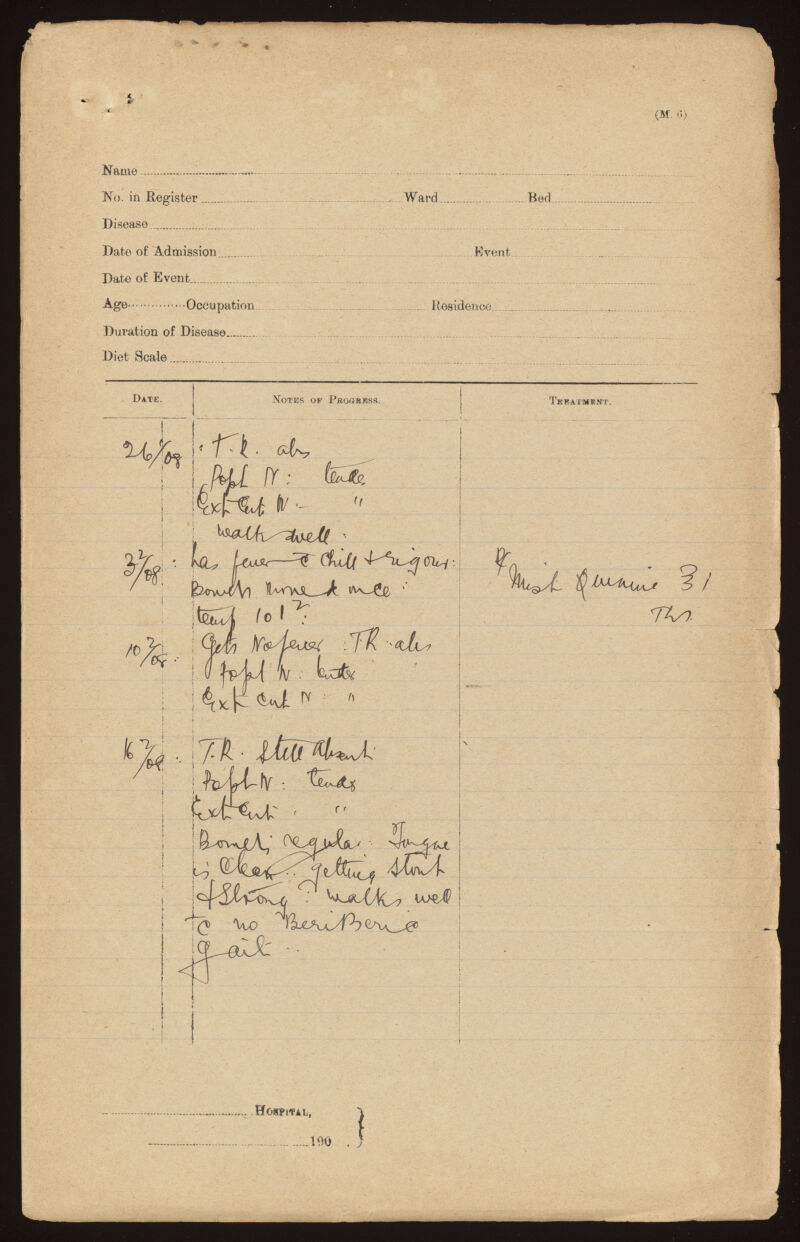 (M. 6)
Name
No. in Register Ward Bed
Disease
Date of Admission Event
Date of Event
Age Occupation Residence
Duration of Disease
Diet Scale
DATE. NOTES OF PROGRESS. TREATMENT.
26/1/08 T.R. abs
Popl N: tender
Ext Cut N - "
walks well.
3/2/08 : has fever c̄ chill & rigour:
Bowels moved once :
temp 101²:
℞ Mist Quinine ʒ1
Tds
10/2/08 : Gets No fever : T.R. abs
Popl N: tender
Ext Cut N : "
16/2/08 : T.R. Still Absent
Popl N: tender
Ext Cut . "
Bowels regular. Tongue
is Clean : getting stout
& Strong : walks well
c̄ no BeriBeric
gait ..
HOSPITAL,
190 .